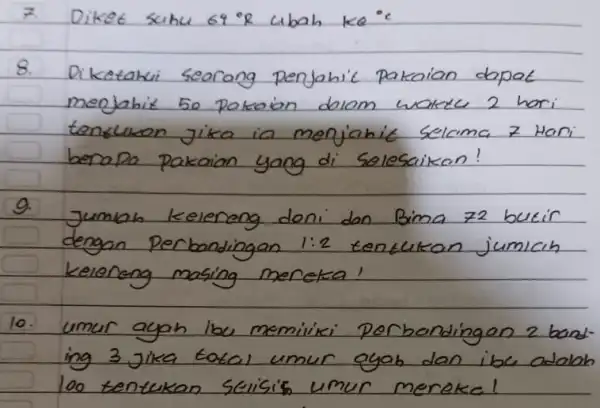 7. Diket suhu 69 °R ubah ke °c
8. Diketahui seorang penjahit pakaian dapat
menjahit 50 pakaian dalam waktu 2 hari
tentukan jika ia menjahit selama 7 Hari
berapa pakaian yang di selesaikan!
9. Jumlah kelereng doni dan Bima 72 butir
dengan perbandingan 1:2 tentukan jumlah
kelereng masing mereka!
10. umur ayah ibu memiliki perbandingan 2 band-
ing 3 jika total umur ayah dan ibu adalah
100 tentukan selisis umur mereka!